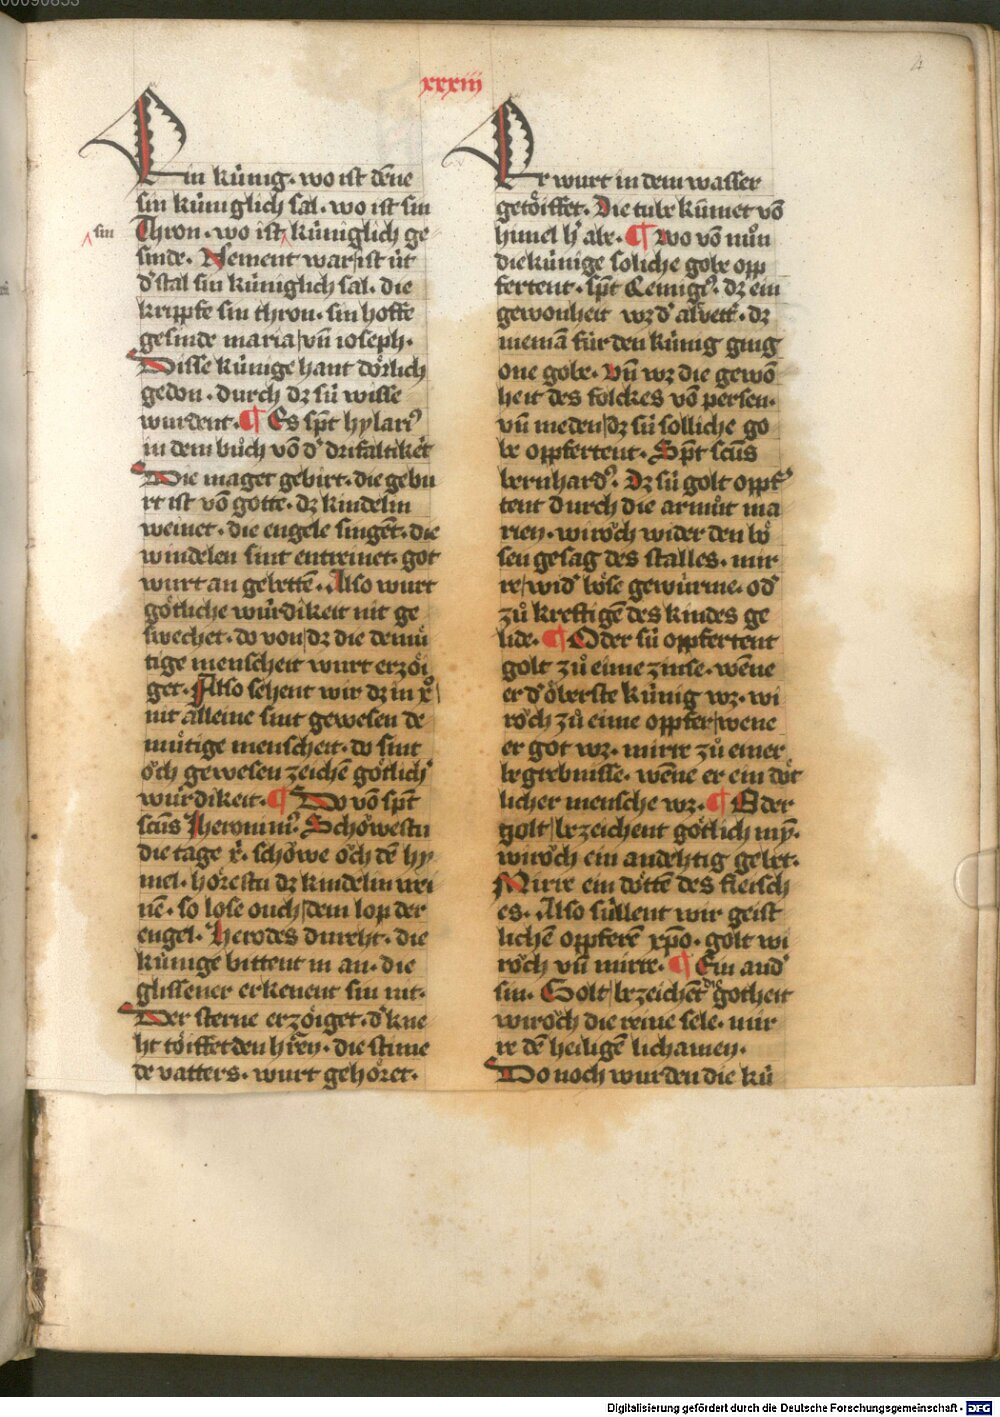 00090853
4
xxxiii
Ein kúnig · wo ist dēne
sin kúniglich sal · wo ist sin
sin
Thron · wo ist kúniglich ge
sinde · Nement war ist út
d' stal sin kúniglich sal · die
krippfe sin thron · sin hoffe
gesinde maria vn̄ ioseph ·
Disse kúnige hant dörlich
geton · durch dz sú wisse
wurdent · ¶ Es sp̄t hylari9
in dem bůch vō d' drifaltikēt
Die maget gebirt · die gebu
rt ist vō gotte · dz kindelin
weinet · die engele singēt · die
windelen sint entreinet · got
wurt an gebettē · Also wurt
götliche wúrdikeit nit ge
swechet · do von dz die demü
tige menscheit wurt erzöi
get · Also sehent wir dz in x̄º
nit alleine sint gewesen de
mütige menscheit · do sint
öch gewesen zeichē götlich'
wúrdikeit · ¶ Do vō sp̄t
scūs Iheronim9 · Schöwestu
die tage x̄i · schöwe öch dē hy
mel · hörestu dz kindelin wei
nē · so lose ouch dem lop der
engel · Herodes durcht · die
kúnige bittent in an · die
glissener erkenent sin nit ·
Der sterne erzöiget · d' kne
ht töiffet den h'ren · die stime
de vatters · wurt gehöret ·
Er wurt in dem wasser
getöiffet · Die tube kúmet vō
himel h' abe · ¶ Wo vō nůn
die kúnige soliche gobe opp
fertent · sp̄t Remigi9 · dz ein
gewonheit wz d' altvett' · dz
niemā fúr den kúnig ging
one gobe · Vn̄ wz die gewō
heit des folckes vō persen ·
vn̄ meden dz sú solliche go
be oppfertent · Sp̄t scūs
bernhard9 · Dz sú golt oppf'
tent durch die armůt ma
rien · wiröch wider den bö
sen gesag des stalles · mir
re wid' böse gewúrme · od'
zů kreftigē des kindes ge
lide · ¶ Oder sú oppfertent
golt zů eime zinse · wēne
er d' öberste kúnig wz · wi
röch zů eime oppfer wene
er got wz · mirre zů einer
begrebnisse · wēne er ein döt
licher mensche wz · ¶ Oder
golt bezeichent götlich myn̄ ·
wiröch ein andehtig gebet ·
Mirre ein döttē des fleisch
es · Also súllent wir geist
lichē oppferē xp̄o · golt wi
röch vn̄ mirre · ¶ Ein and'
sin · Golt bezeichēt die gotheit
wiröch die reine sele · mir
re dē heiligē lichamen ·
Do noch wurden die kú
Digitalisierung gefördert durch die Deutsche Forschungsgemeinschaft - DFG